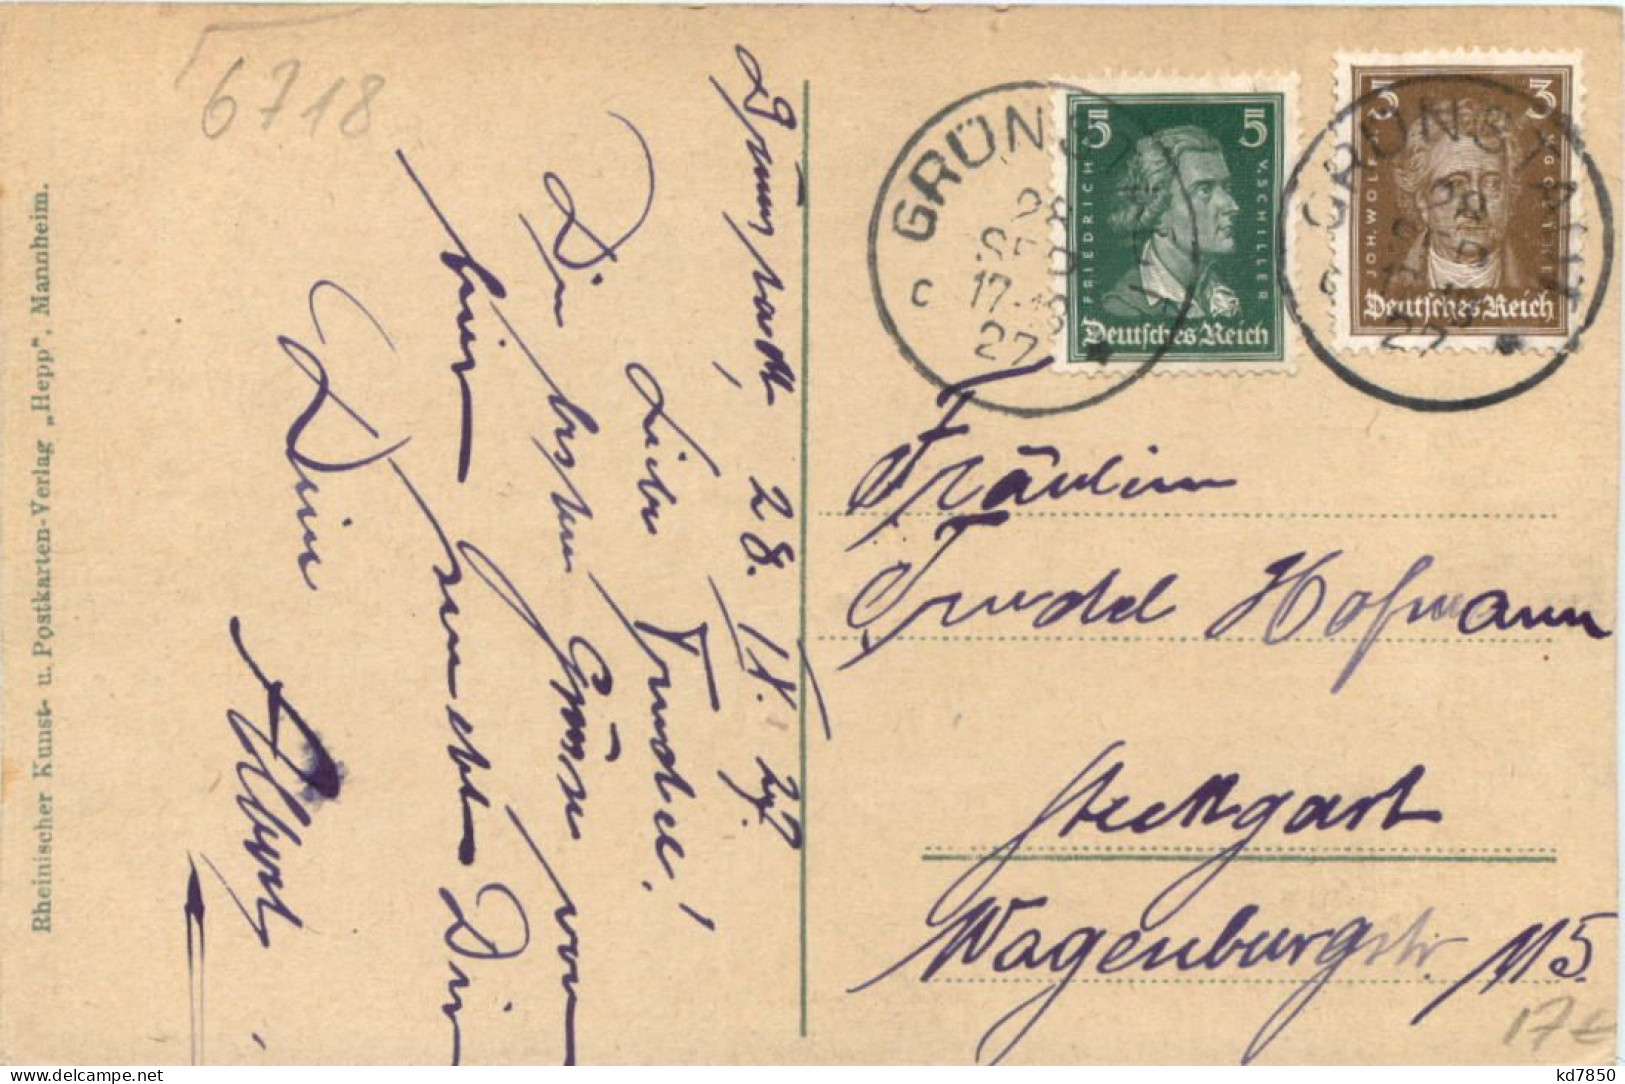 6718
Grünstadt, 28. IX. 27.
Liebe Trudel!
Die besten Grüsse von
hier sendet Dir
Dein
Albert
Rheinischer Kunst- u. Postkarten-Verlag „Hepp“, Mannheim.
GRÜNSTADT
28
SEP
17-18
27
C
5 5
FRIEDRICH V. SCHILLER
Deutsches Reich
GRÜNSTADT
28
SEP
27
3 3
JOH. WOLFG. V. GOETHE
Deutsches Reich
Fräulein
Trudel Hofmann
Stuttgart
Wagenburgstr. 115
17€
kd7850